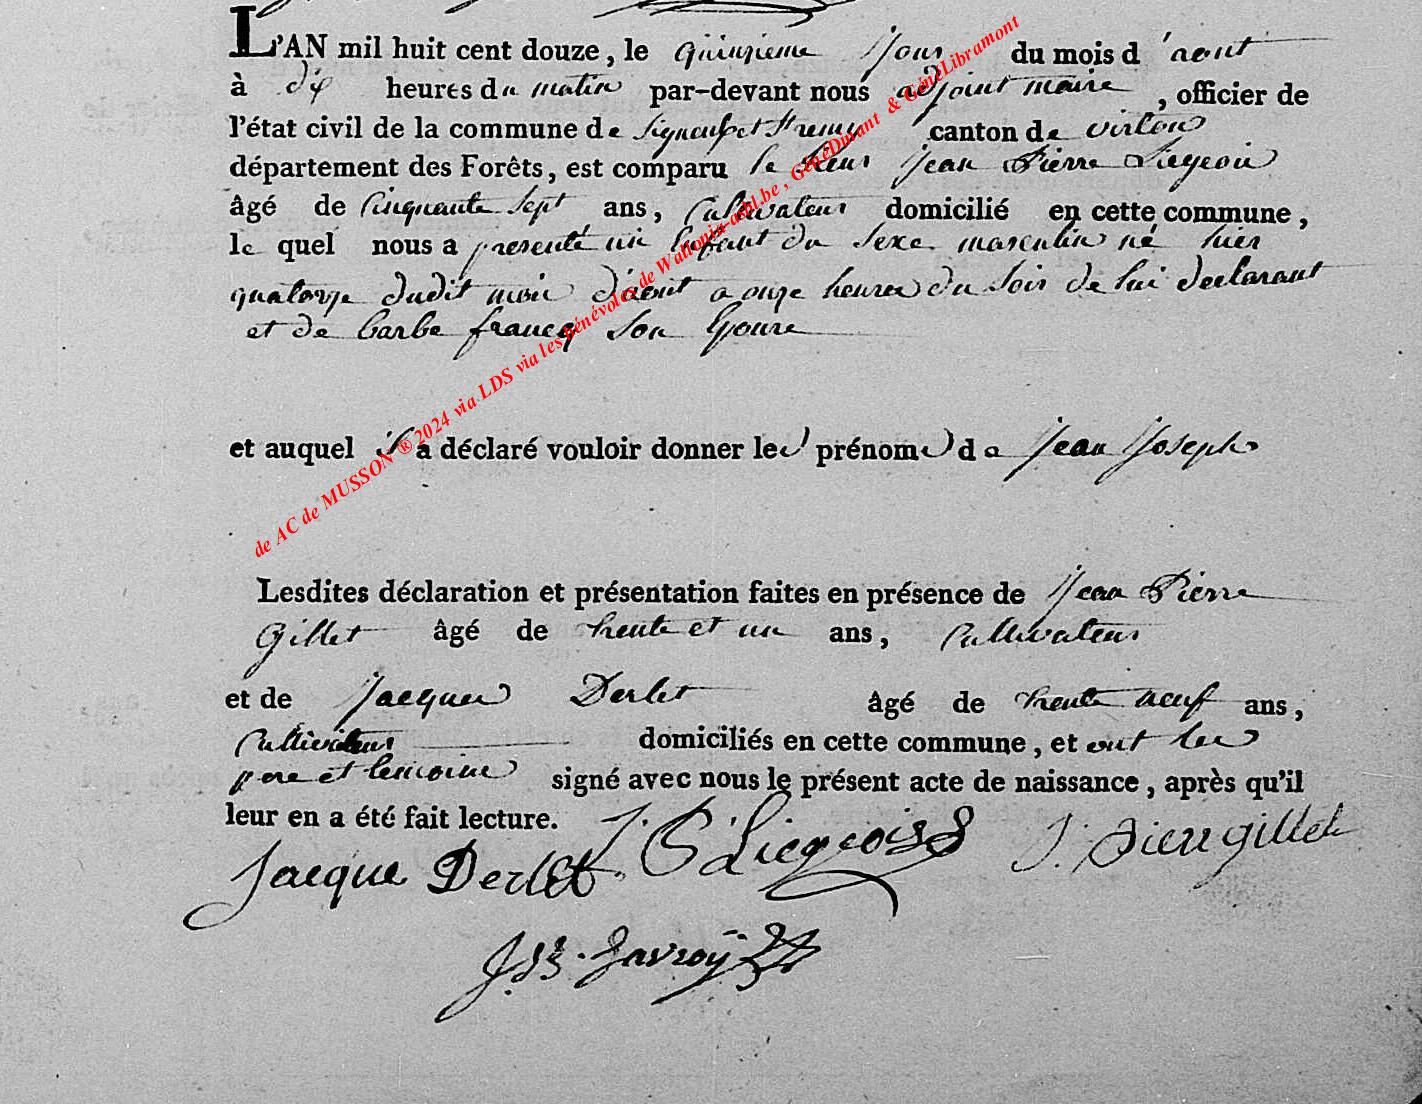 L'AN mil huit cent douze, le quinzieme jour du mois d'aout
à dix heures du matin par-devant nous adjoint maire, officier de
l'état civil de la commune de Signeulx et St remy canton de virton
département des Forêts, est comparu le sieur jean Pierre Liegeois
âgé de Cinquante Sept ans, Cultivateur domicilié en cette commune,
le quel nous a presenté un Enfant du Sexe masculin né hier
quatorze dudit mois d'aout a onze heures du Soir de lui declarant
et de barbe francq Son Epouse
et auquel il a déclaré vouloir donner les prénoms de jean joseph
Lesdites déclaration et présentation faites en présence de jean Pierre
Gillet âgé de trente et un ans, Cultivateur
et de jacques Derlet âgé de trente neuf ans,
Cultivateur domiciliés en cette commune, et ont les
pere et temoins signé avec nous le présent acte de naissance, après qu'il
leur en a été fait lecture. J. P. Liegeois J. Pier gillet
Jacque Derlet
Javroÿ
de AC de MUSSON ® 2024 via LDS via les bénévoles de Wallonia-asbl.be, GénéDinant & GénéLibramont